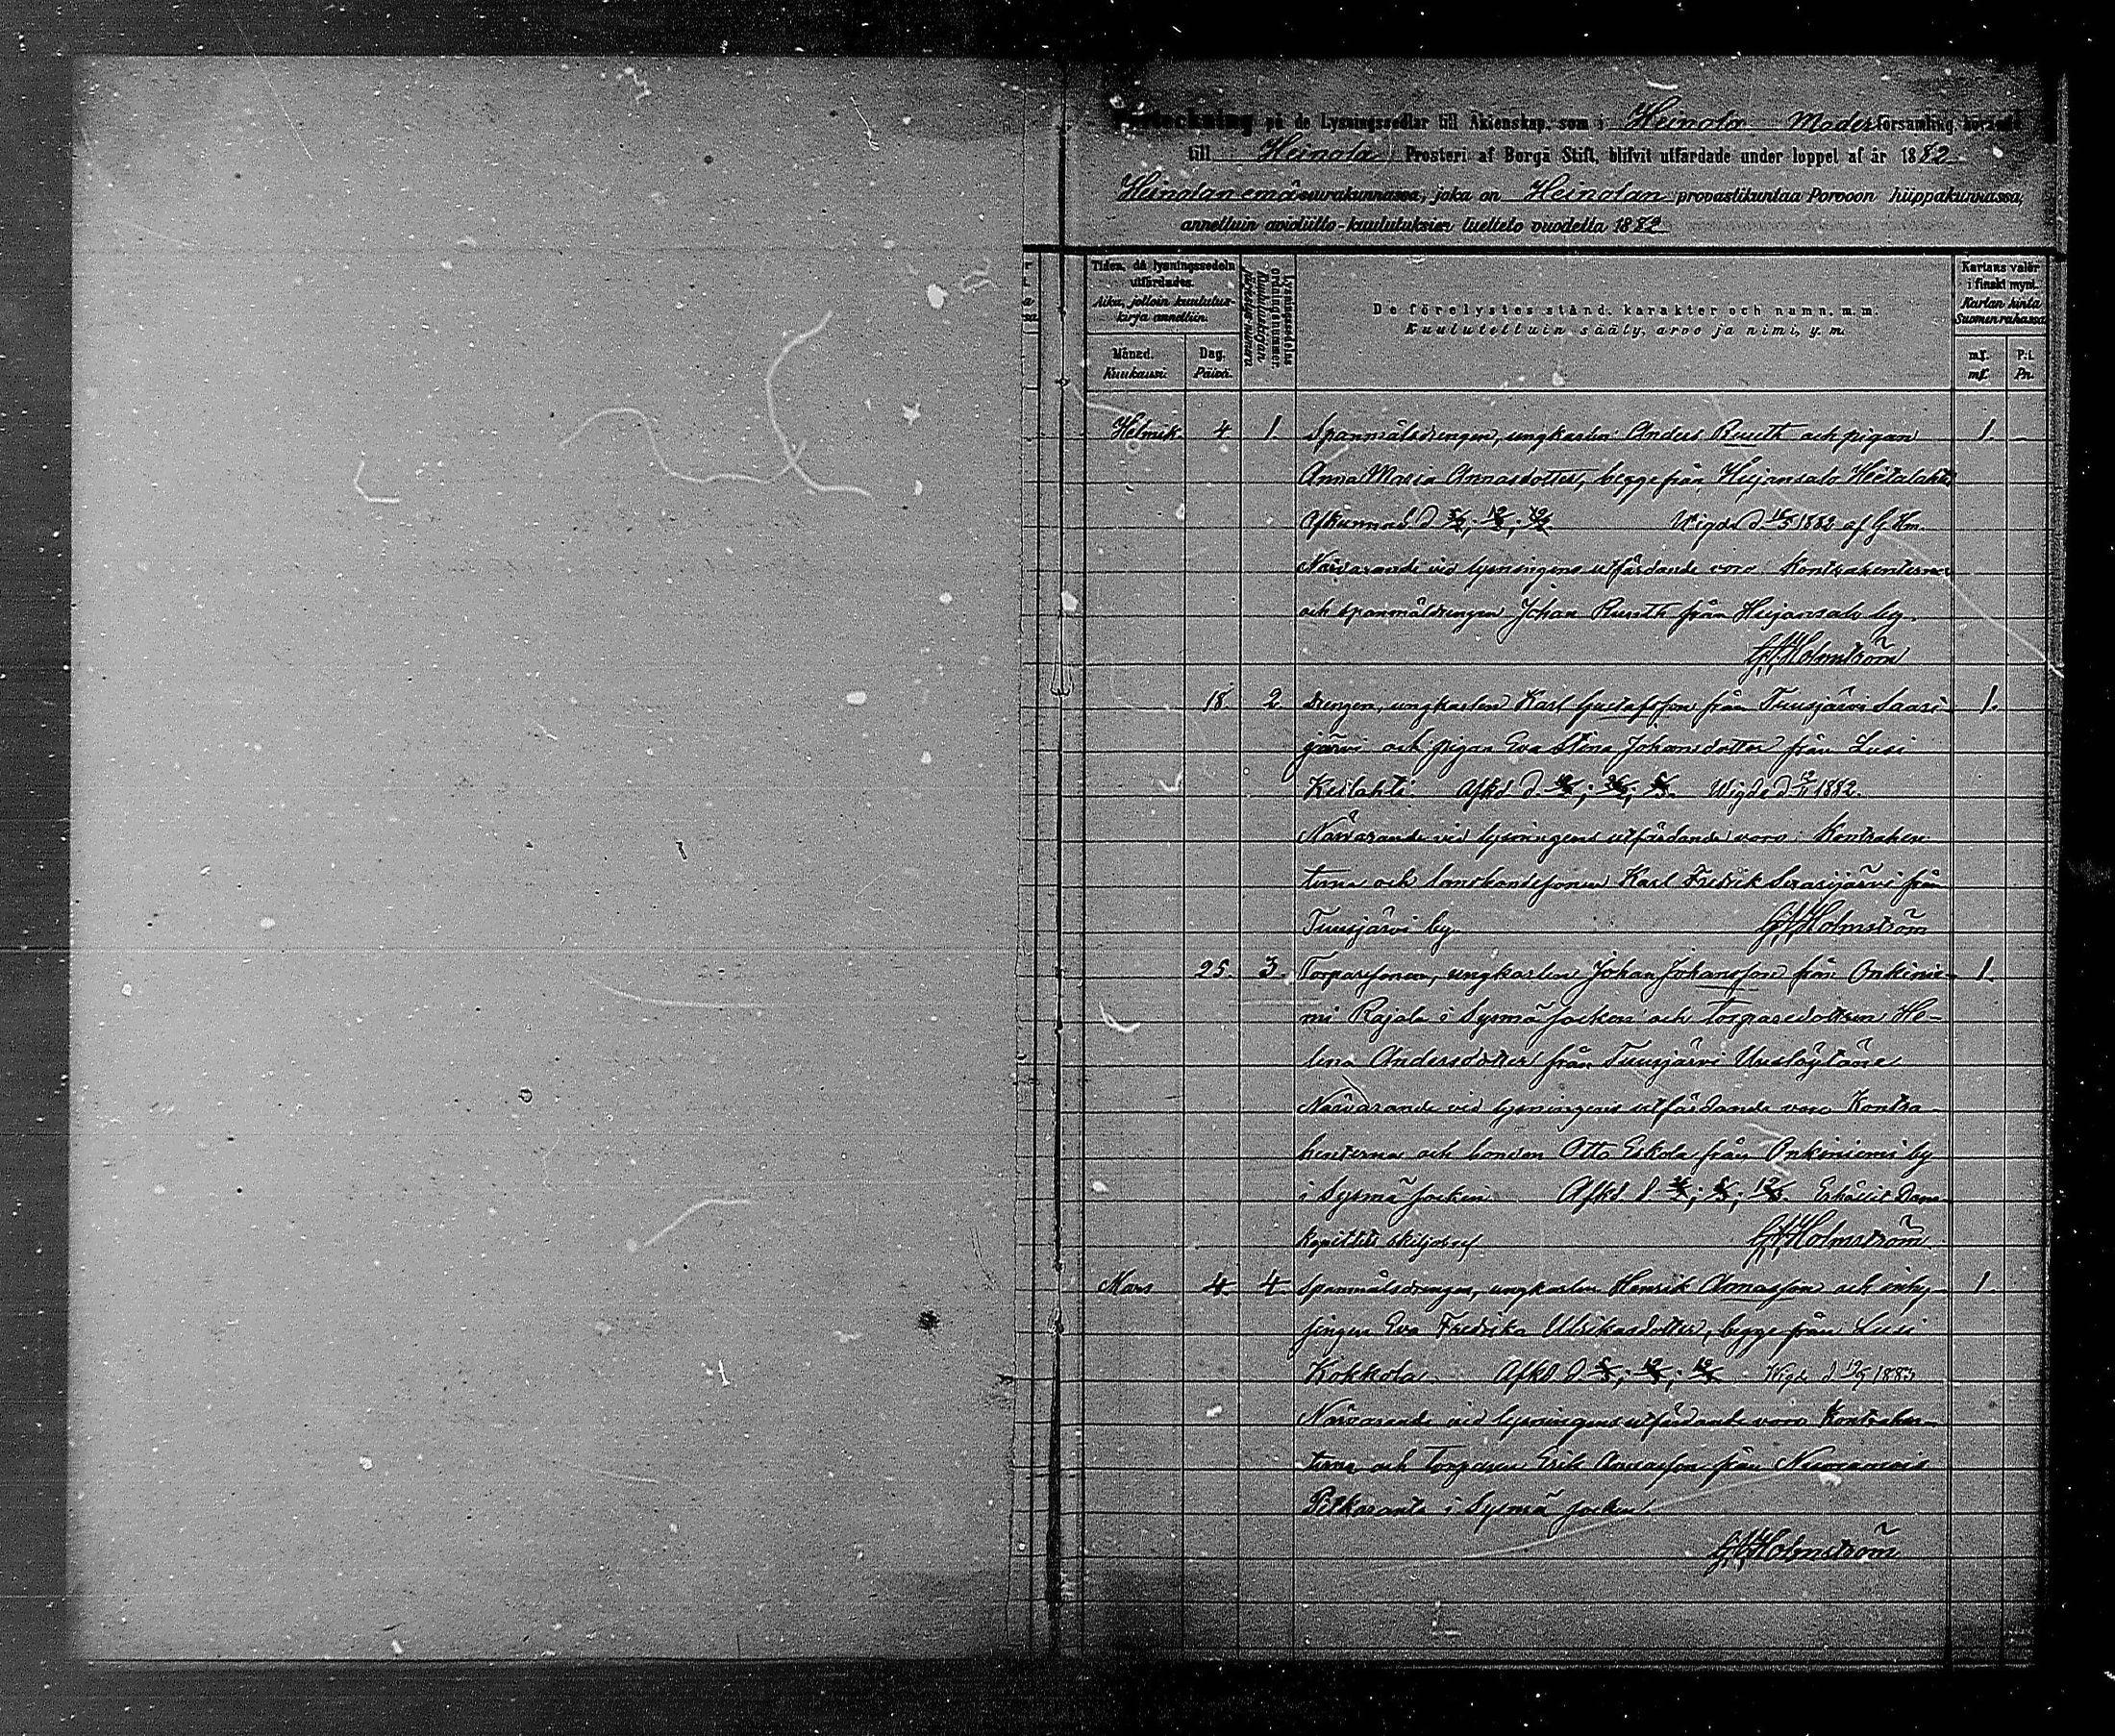 Förteckning på de Lysningssedlar till Äktenskap, som i Heinola Moder församling, hörande
till Heinola Prosteri af Borgå Stift, blifvit utfärdade under loppet af år 1882
Heinolan emäseurakunnassa, joka on Heinolan provastikuntaa Porvoon hiippakunnassa,
annettuin avioliitto-kuulutuksien luettelo vuodelta 1882
Tiden, då lysningssedeln utfärdades.
Aika, jolloin kuulutus-kirja annettiin.
Månad.
Kuukausi.
Dag.
Päivä.
Lysningssedelns ordningsnummer.
Kuulutuskirjan järjestys-numero
De förelystes stånd, karakter och namn, m. m.
Kuulutettuin sääty, arvo ja nimi, y. m.
Kartans valör i finskt mynt.
Kartan hinta Suomen rahassa
mf. P:i.
mf. Pn.
Helmik. 4 1. Spanmålsdrengen, ungkarlen Anders Ruuth och pigan 1. –
Anna Maria Annasdotter, begge från Heijansalo Hietalahti
Afkunnad d 5/2; 12/2; 19/2 Vigde d 1882 af G. Hm.
Närvarande vid lysningens utfärdande voro Kontrahenterna
och spanmåldrengen Johan Ruuth från Heijansalo by.
G. A. Holmström
18. 2 Drengen, ungkarlen Karl Gustafsson från Tuusjärvi Saari- 1.
järvi och pigan Eva Stina Johansdotter från Lusi
Keilahti Afkd d. 19/2; 26/2; 5/3. Wigde d 1882.
Närvarande vid lysningens utfärdande voro Kontrahen-
terna och bondesonen Karl Fredrik från
Tuusjärvi by G. A. Holmström
25. 3. Torparesonen, ungkarlen Johan Johansson från Onkinie- 1.
mi Rajala i Sysmä socken och torparedottren He-
lena Andersdotter från Tuusjärvi
Närvarande vid lysningens utfärdande voro Kontra-
henterna och bonden Otto Eskola från Onkiniemi by
i Sysmä socken Afkd d 26/2; 5/3; 12/3 Erhållit Dom-
kapitlets skiljobref G. A. Holmström
Mars 4. 4. Spanmålsdrengen, ungkarlen Henrik Annasson och inhy- 1.
singen Eva Fredrika Ulrikasdotter, begge från Lusi
Kokkola. Afkd d 5/3; 12/3; 19/3 Vigde d 1883
Närvarande vid lysningens utfärdande voro Kontrahen-
terna och Torparen Erik från
i Sysmä socken.
G. A. Holmström